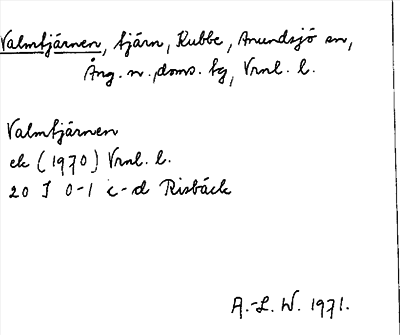 Valmtjärnen, tjärn, Kubbe, Anundsjö sn,
Ång. n. doms. tg, Vrnl. l.
Valmtjärnen
ek (1970) Vrnl. l.
20 I 0-1 c-d Risbäck
A.-L. W. 1971.